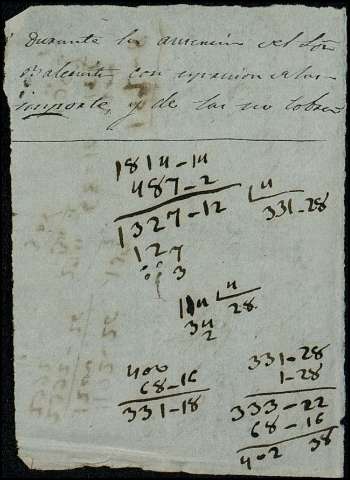 durante la ausencia del Sor
Balente con espresion de los
importe, y de las no cobra
1814-14
487-2
1327-12 4
127 331-28
3
114 4
34 28
2
400
68-16
331-18
331-28
1-28
333-22
68-16
402 38